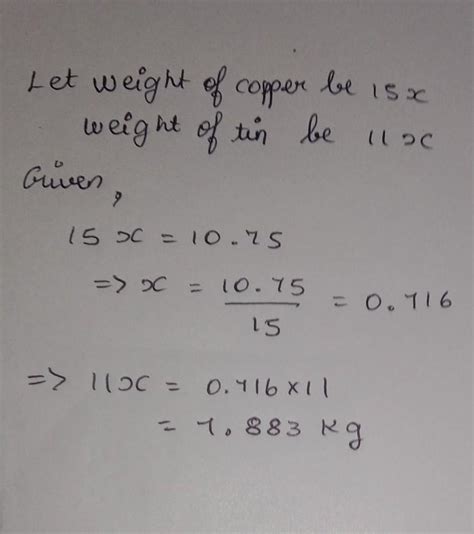 Let weight of copper be 15x
weight of tin be 11x
Given,
15x = 10.75
=> x = 10.75 / 15 = 0.716
=> 11x = 0.716 x 11
= 7.883 Kg